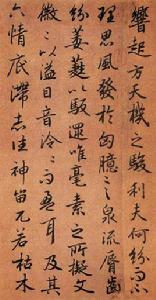 響起方天機之駿利夫何紛而不
理思風發於胸臆言泉流脣齒
紛葳蕤以馺遝唯毫素之所擬文
徽々以溢目音泠々而盈耳及其
六情底滯志往神留兀若枯木